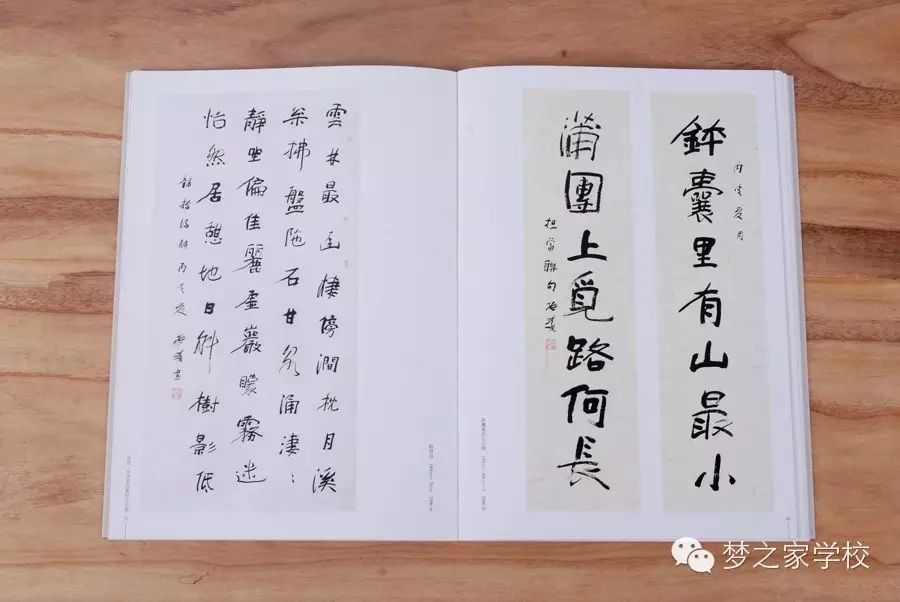 鉢囊里有山最小
丙戌夏月
蒲團上覓路何長
担當聯句
雲林最幽棲傍澗枕月溪
枩拂盤陁石甘泉涌淒〻
靜坐偏佳麗虛巖曚霧迷
怡然居憩地日斜樹影低
錄拾得詩丙戌夏
梦之家学校